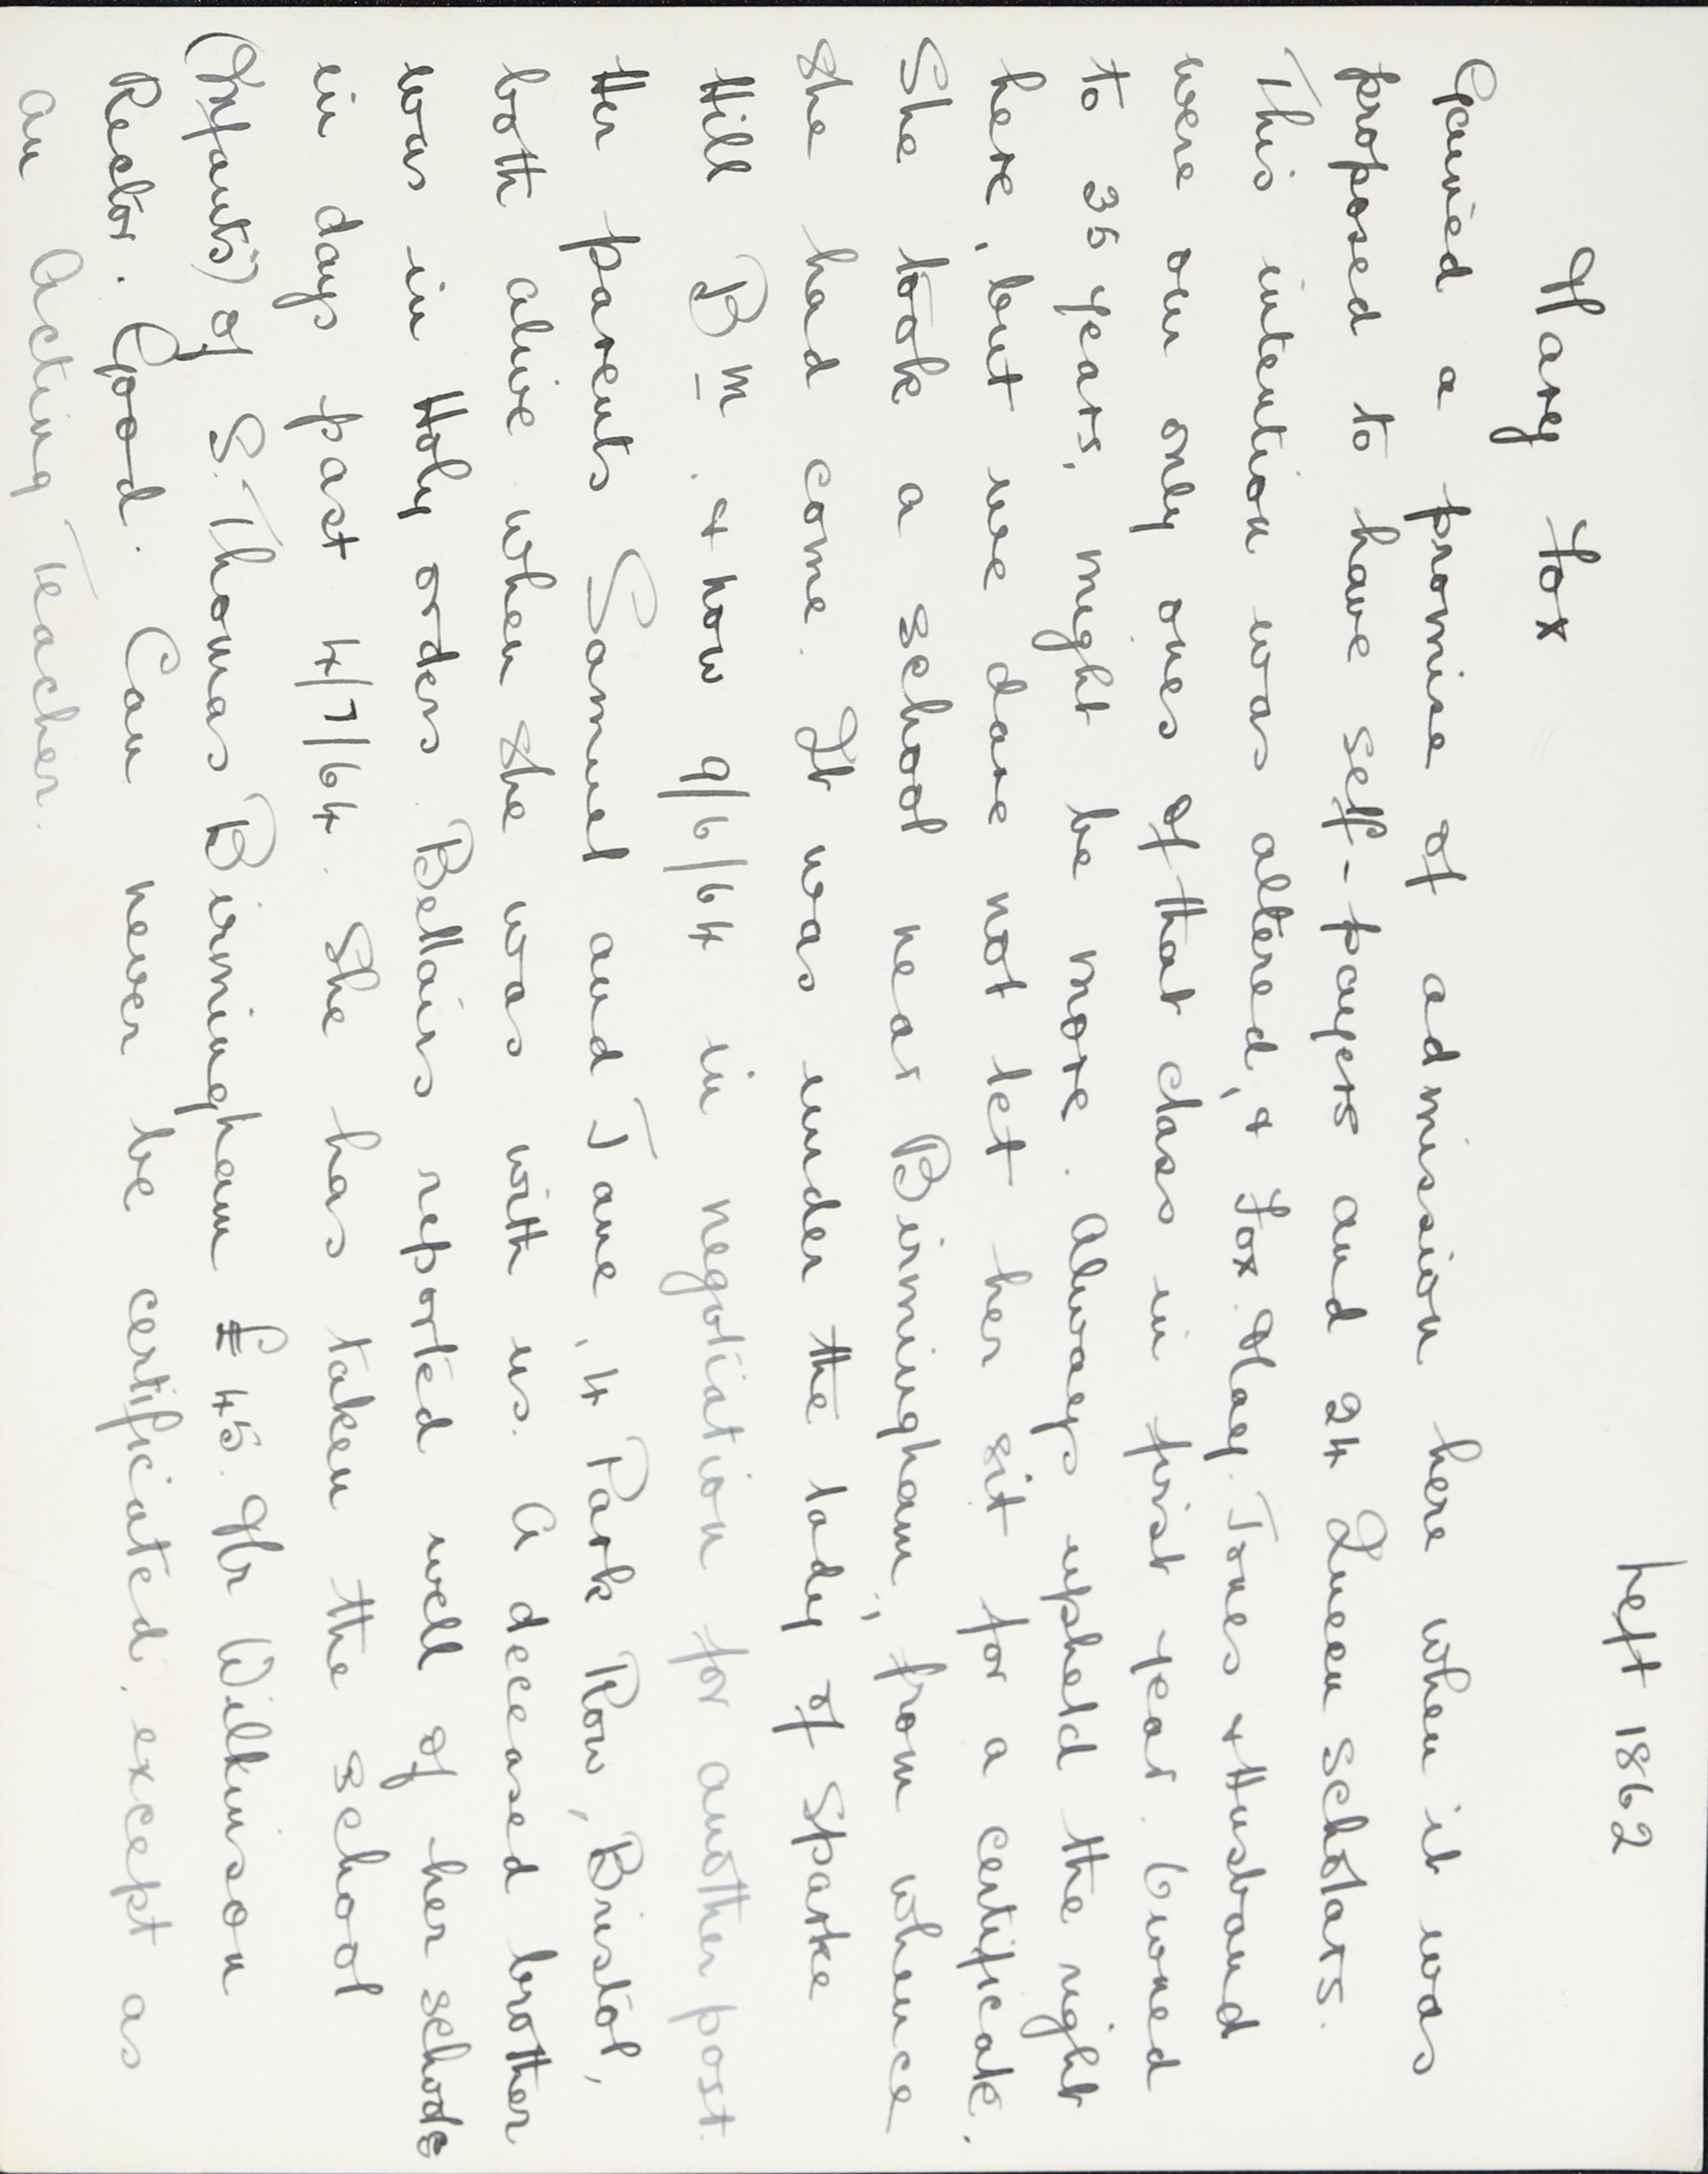 Left 1862
Mary Fox
Gained a promise of admission here when it was
proposed to have self-payers and 24 Queen scholars.
This intention was altered, & Fox. May. Jones & Husband
were our only ones of that class in first year. Owned
to 35 years, might be more. Always upheld the right
here, but we dare not let her sit for a certificate.
She took a school near Birmingham, from whence
she had come. It was under the lady of Sparke
Hill Bm. & now 9/6/64 in negotiation for another post.
Her parents Samuel and Jane, 4 Park Row, Bristol,
both alive when she was with us. A deceased brother
was in Holy orders. Bellairs reported well of her schools
in days past 4/7/64. She has taken the school
(Infants) of S. Thomas Birmingham £45. Mr Wilkinson
Rector. Good. Can never be certificated, except as
an Acting Teacher.